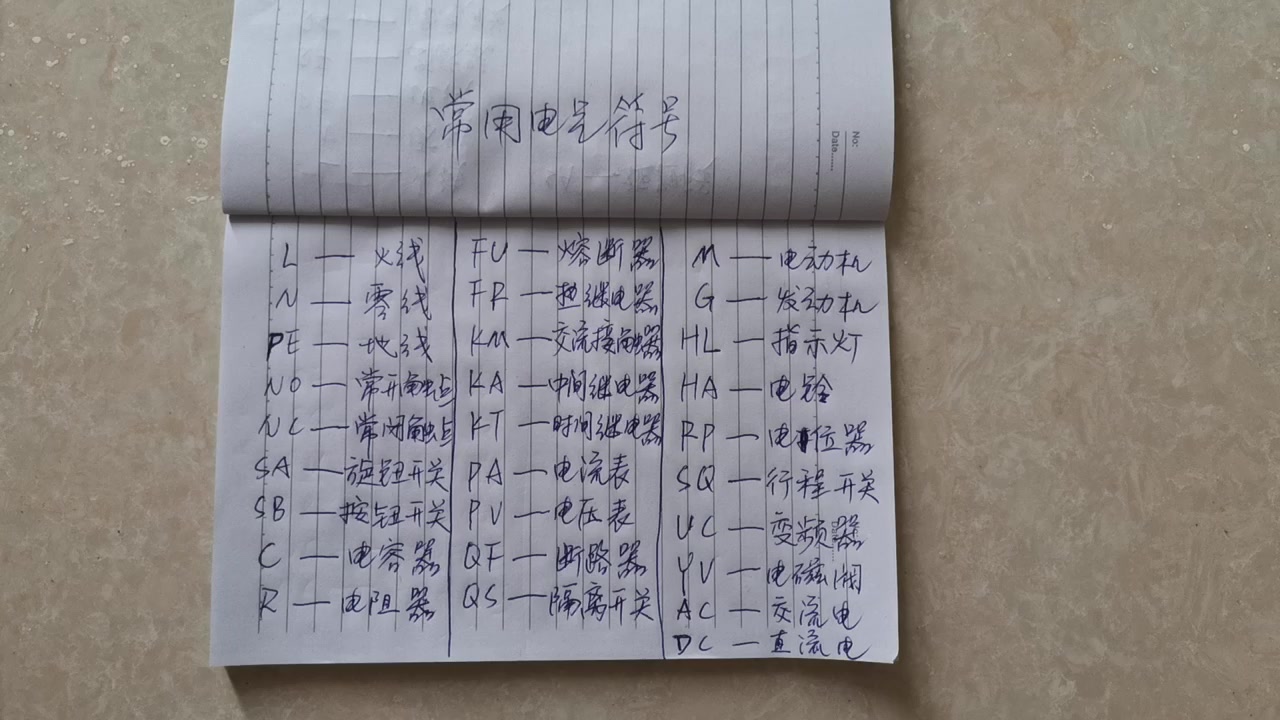 常用电气符号
No:
Data
L — 火线
N — 零线
PE — 地线
NO — 常开触点
NC — 常闭触点
SA — 旋钮开关
SB — 按钮开关
C — 电容器
R — 电阻器
FU — 熔断器
FR — 热继电器
KM — 交流接触器
KA — 中间继电器
KT — 时间继电器
PA — 电流表
PV — 电压表
QF — 断路器
QS — 隔离开关
M — 电动机
G — 发动机
HL — 指示灯
HA — 电铃
RP — 电位器
SQ — 行程开关
UC — 变频器
YV — 电磁阀
AC — 交流电
DC — 直流电